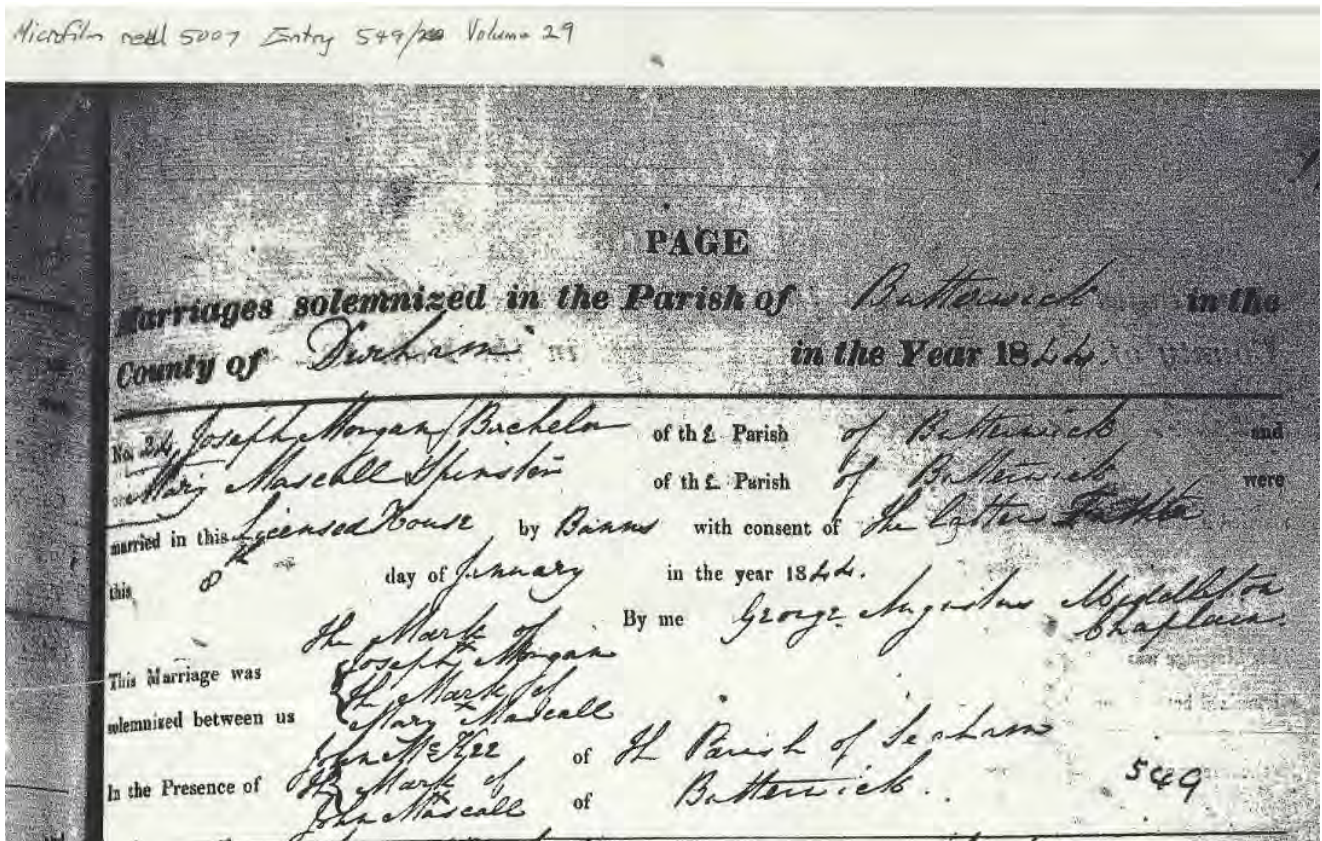 Microfilm reel 5007 Entry 549/ Volume 29
PAGE
Marriages solemnized in the Parish of Butterwick in the
County of Durham in the Year 1844.
No. 24 Joseph Morgan Bachelor of the Parish of Butterwick and
Mary Mascall Spinster of the Parish of Butterwick were
married in this Licensed House by Banns with consent of the latters Father
this 8th day of January in the year 1844.
By me George Augustus Middleton
Chaplain.
The Mark of
Joseph X Morgan
This Marriage was
The Mark of
solemnized between us
Mary X Mascall
John McKee of the Parish of Seaham
In the Presence of The Mark of
John X Mascall of Butterwick.
549